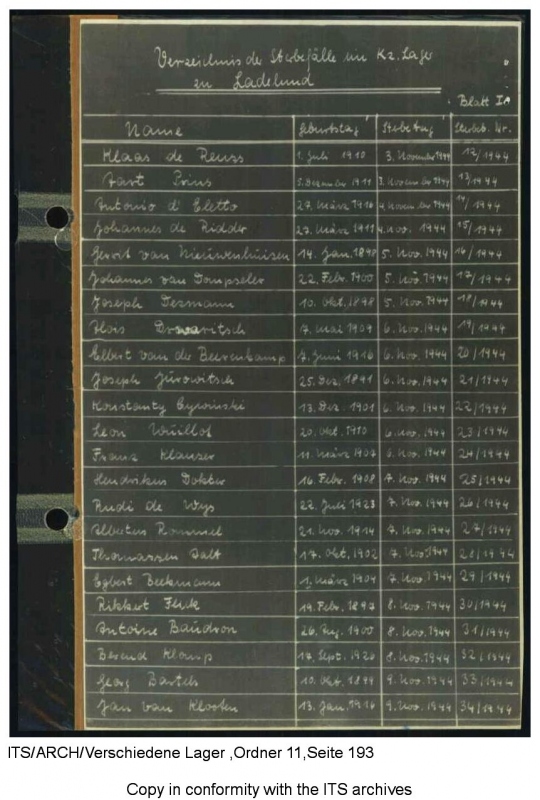 Verzeichnis der Sterbefälle im Kz. Lager
zu Ladelund
Blatt I
Name Geburtstag Sterbetag Sterbeb. Nr.
Klaas de Reuss 1. Juli 1910 3. November 1944 12/1944
Prins 5. Dezember 1911 November 1944 13/1944
Antonio d' Eletto 27. März 1916 4. November 1944 14/1944
Johannes de Ridder 27. März 1911 4. Nov. 1944 15/1944
Gerrit van Nieuwenhuizen 14. Jan. 1898 5. Nov. 1944 16/1944
Johannes van Dompseler 22. Febr. 1900 5. Nov. 1944 17/1944
Joseph Dezmann 10. Okt. 1898 5. Nov. 1944 18/1944
Alois 7. Mai 1909 6. Nov. 1944 19/1944
Elbert van de Beerenkamp 7. Juni 1916 6. Nov. 1944 20/1944
Joseph Jurowitsch 25. Dez. 1891 6. Nov. 1944 21/1944
Konstanty Cywinski 13. Dez. 1901 6. Nov. 1944 22/1944
Leon Wuillot 20. Okt. 1910 6. Nov. 1944 23/1944
Franz Klauzer 11. März 1907 6. Nov. 1944 24/1944
Hendrikus Dokter 16. Febr. 1908 7. Nov. 1944 25/1944
Rudi de Wys 22. Juli 1923 7. Nov. 1944 26/1944
Albertus Rommel 21. Nov. 1914 7. Nov. 1944 27/1944
Thomassen Aalt 17. Okt. 1902 7. Nov. 1944 28/1944
Egbert Beekmann 1. März 1904 7. Nov. 1944 29/1944
Rikkert Flick 19. Febr. 1897 8. Nov. 1944 30/1944
Antoine Baudron 26. Aug. 1900 8. Nov. 1944 31/1944
Berend Klomp 17. Sept. 1920 8. Nov. 1944 32/1944
Georg Bartels 10. Okt. 1899 9. Nov. 1944 33/1944
Jan van Klosten 13. Jan. 1916 9. Nov. 1944 34/1944
ITS/ARCH/Verschiedene Lager ,Ordner 11,Seite 193
Copy in conformity with the ITS archives